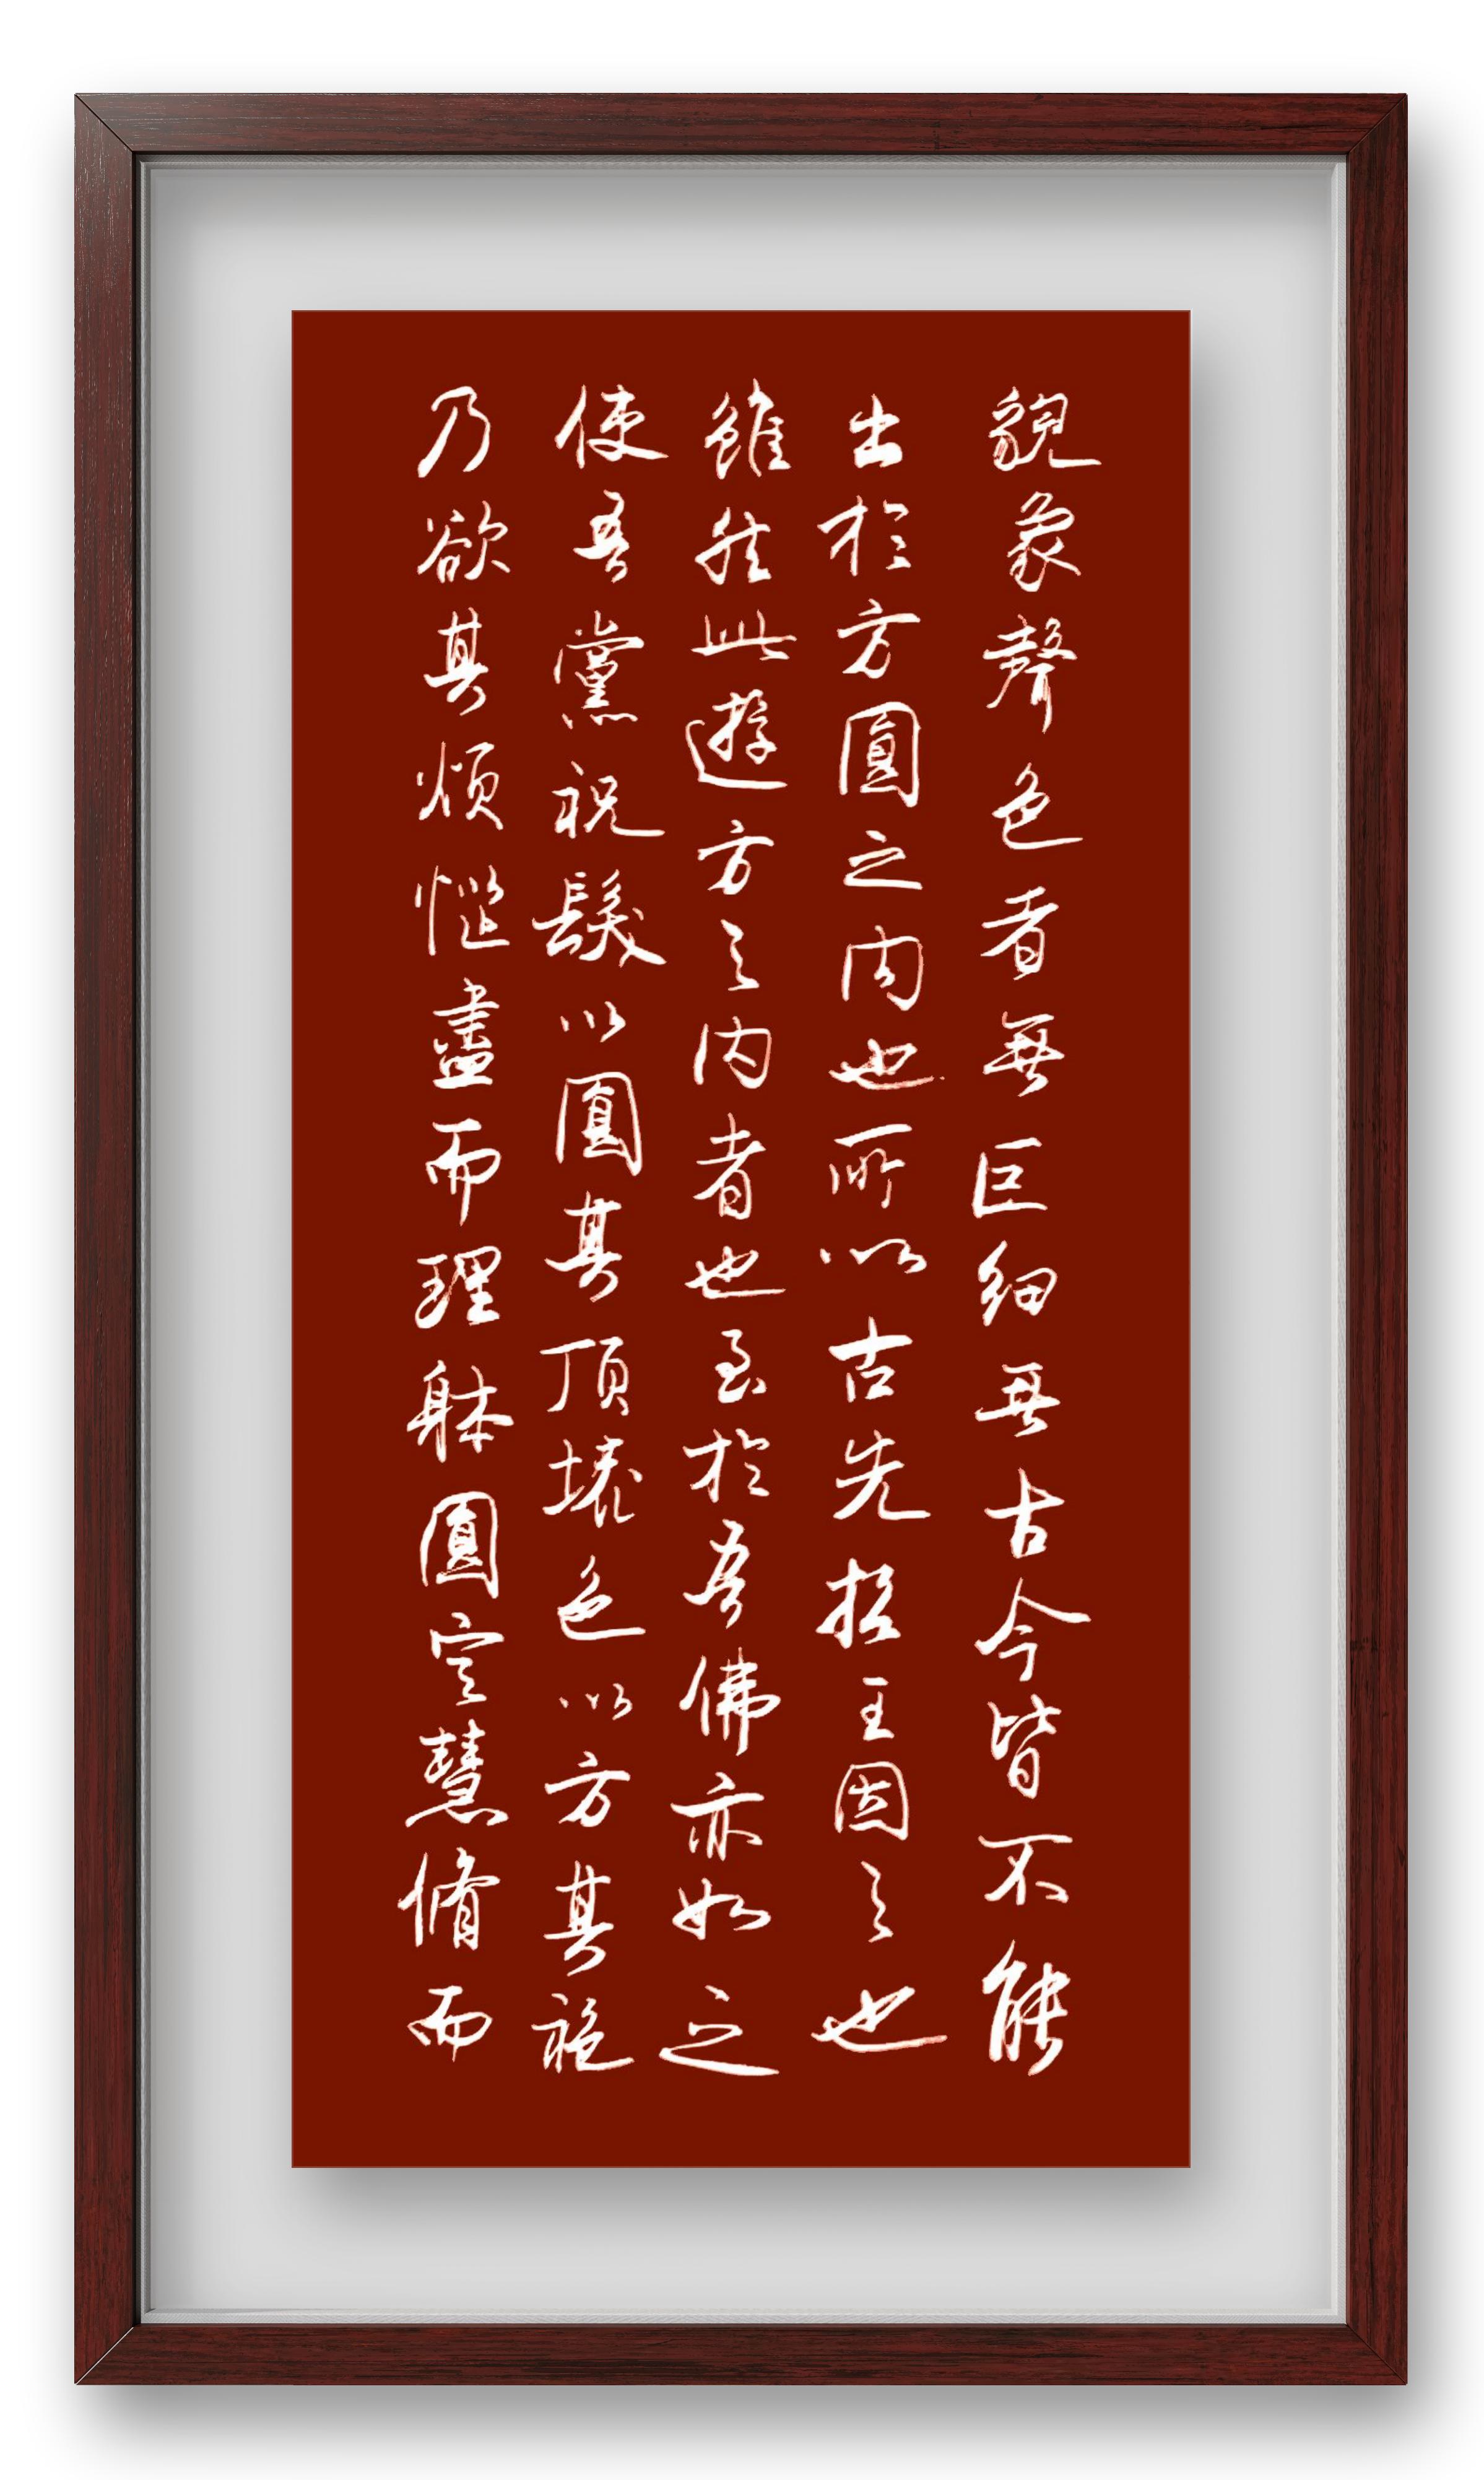 貌象聲色者無巨細無古今皆不能
出於方圓之内也所以古先哲王因之也
雖然此遊方之内者也至於吾佛亦如之
使吾黨祝髮以圓其頂壞色以方其袍
乃欲其煩惱盡而理躰圓定慧脩而